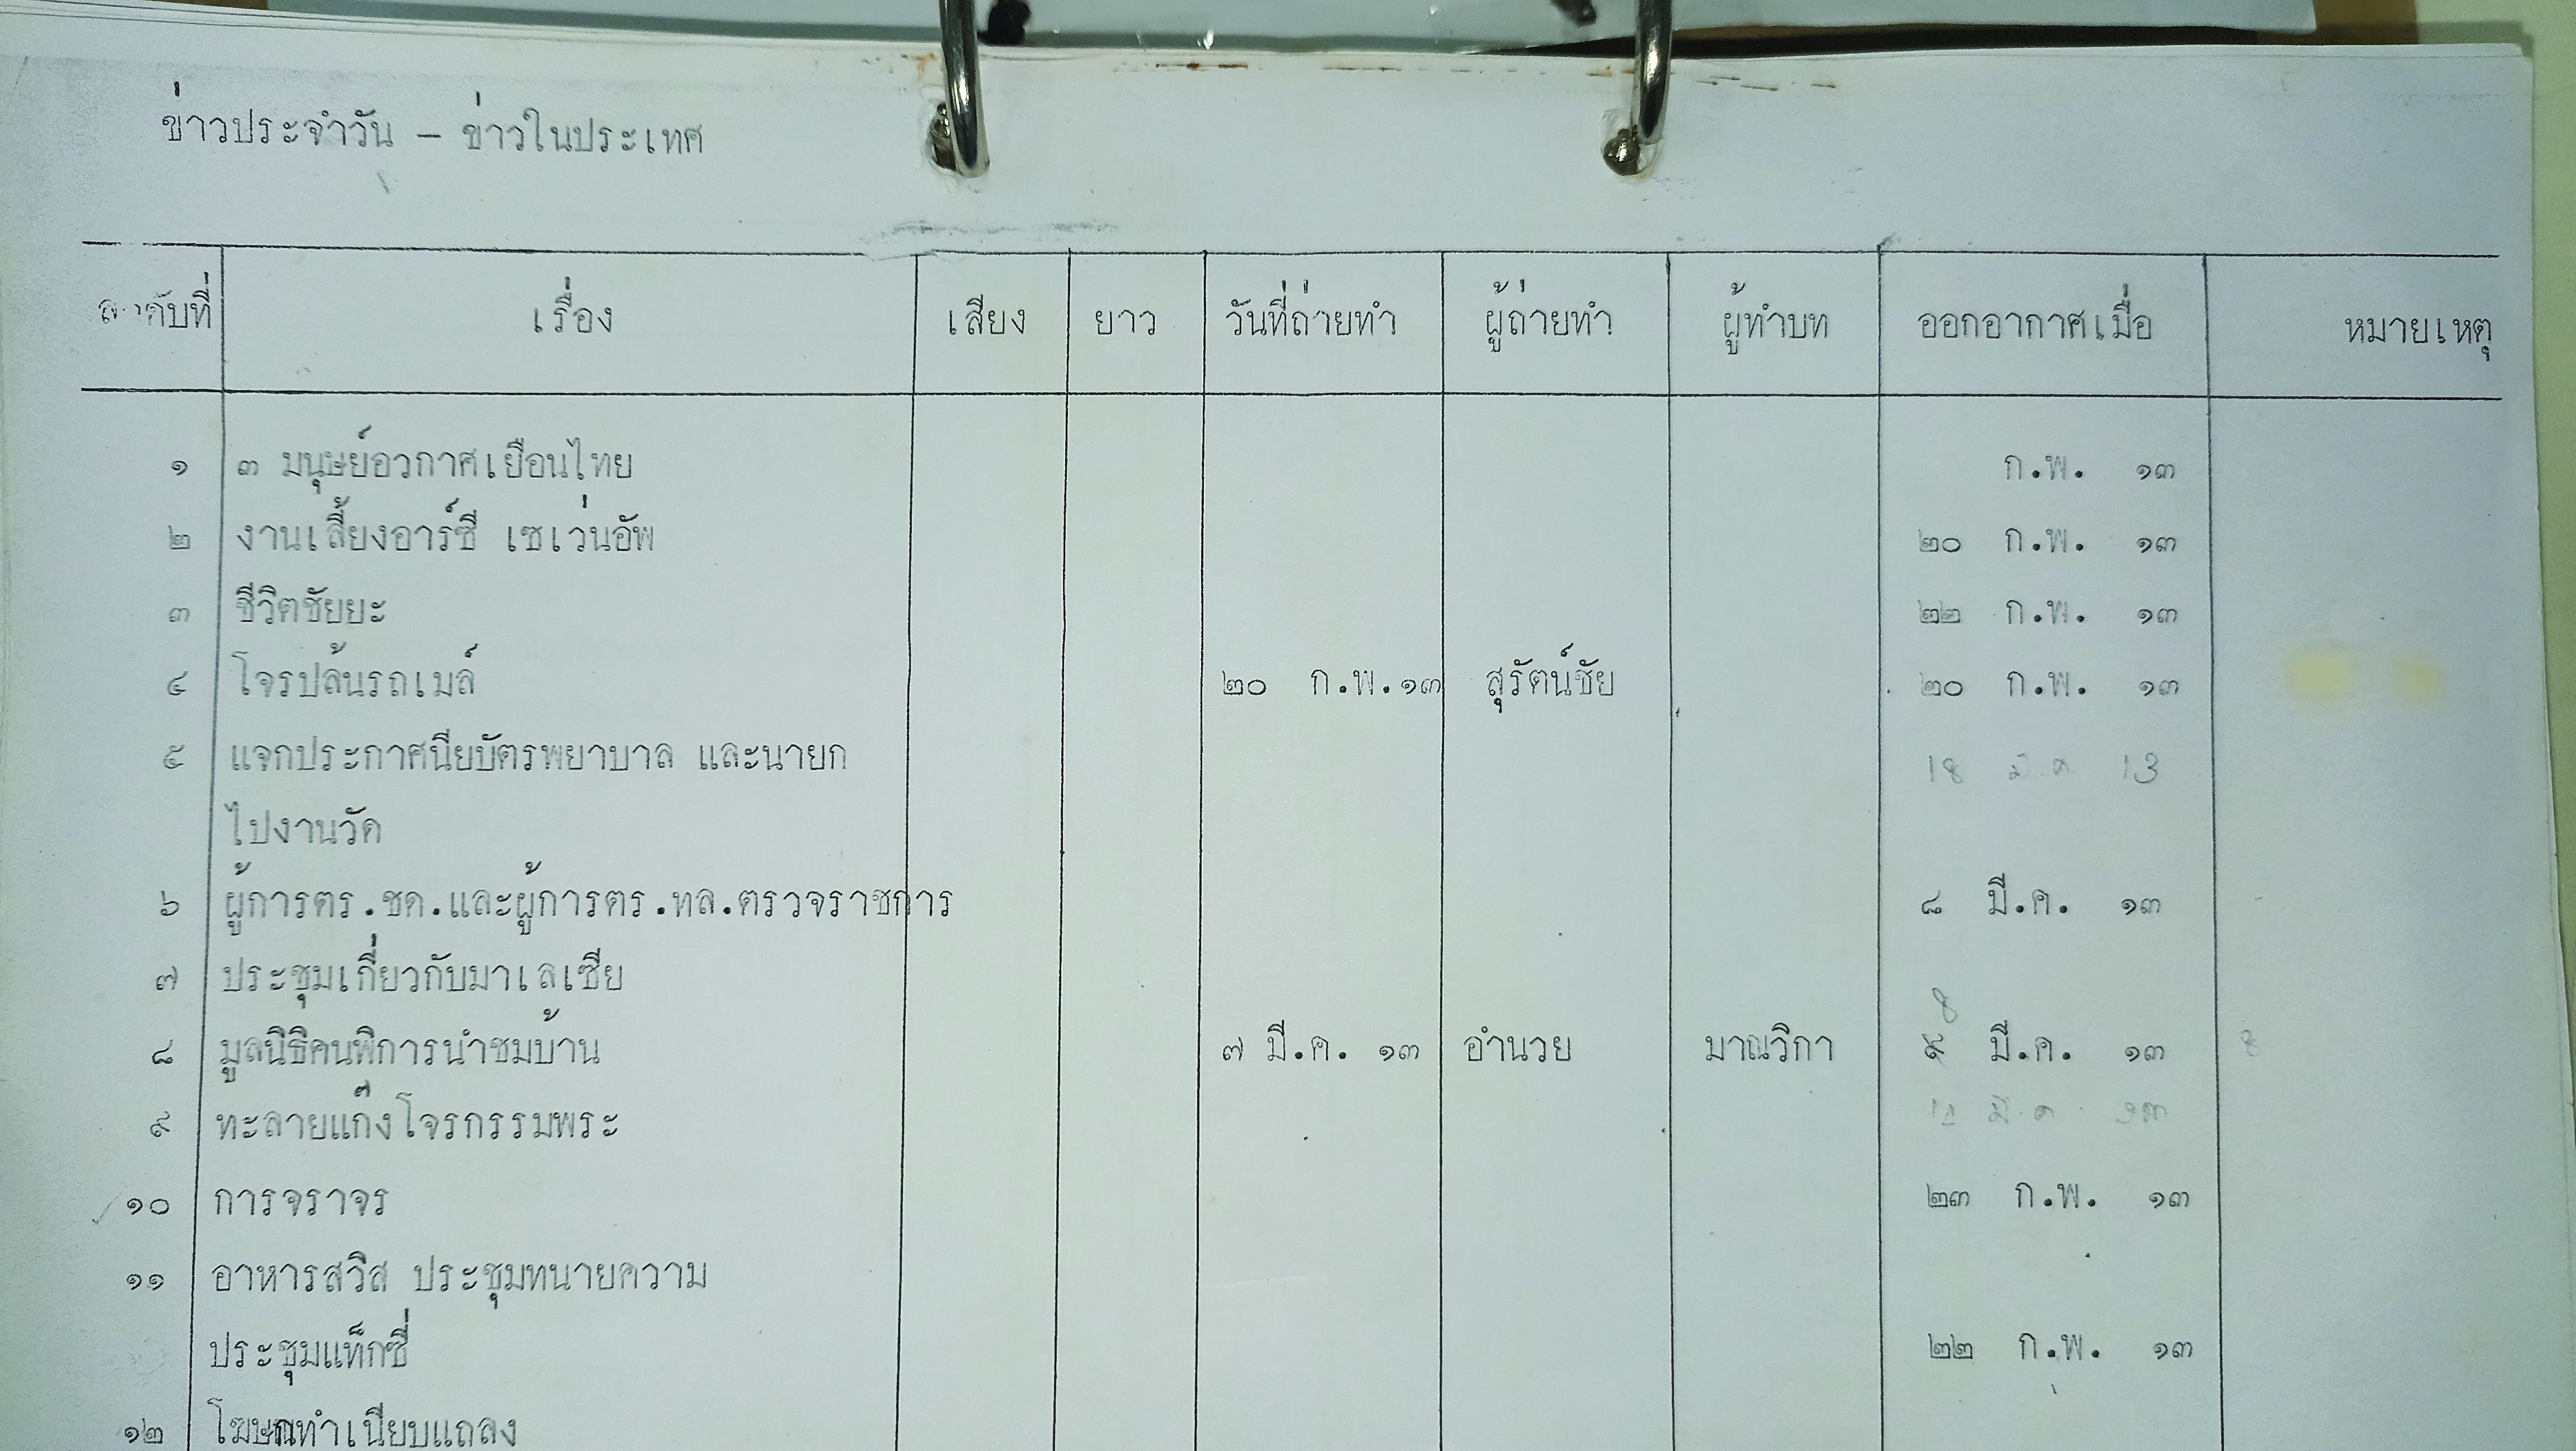 ข่าวประจำวัน – ข่าวในประเทศ
ลำดับที่ เรื่อง เสียง ยาว วันที่ถ่ายทำ ผู้ถ่ายทำ ผู้ทำบท ออกอากาศเมื่อ หมายเหตุ
๑ ๓ มนุษย์อวกาศเยือนไทย ก.พ. ๑๓
๒ งานเลี้ยงอาร์ซี เซเว่นอัพ ๒๐ ก.พ. ๑๓
๓ ชีวิตชัยยะ ๒๒ ก.พ. ๑๓
๔ โจรปล้นรถเมล์ ๒๐ ก.พ.๑๓ สุรัตน์ชัย ๒๐ ก.พ. ๑๓
๕ แจกประกาศนียบัตรพยาบาล และนายก 18 มี.ค. 13
ไปงานวัด
๖ ผู้การตร.ชด.และผู้การตร.ทล.ตรวจราชการ ๘ มี.ค. ๑๓
๗ ประชุมเกี่ยวกับมาเลเซีย
๘ มูลนิธิคนพิการนำชมบ้าน ๗ มี.ค. ๑๓ อำนวย มาณวิกา 8 มี.ค. ๑๓
๙ ทะลายแก๊งโจรกรรมพระ มี.ค. ๑๓
๑๐ การจราจร ๒๓ ก.พ. ๑๓
๑๑ อาหารสวิส ประชุมทนายความ
ประชุมแท็กซี่ ๒๒ ก.พ. ๑๓
๑๒ โฆษกทำเนียบแถลง